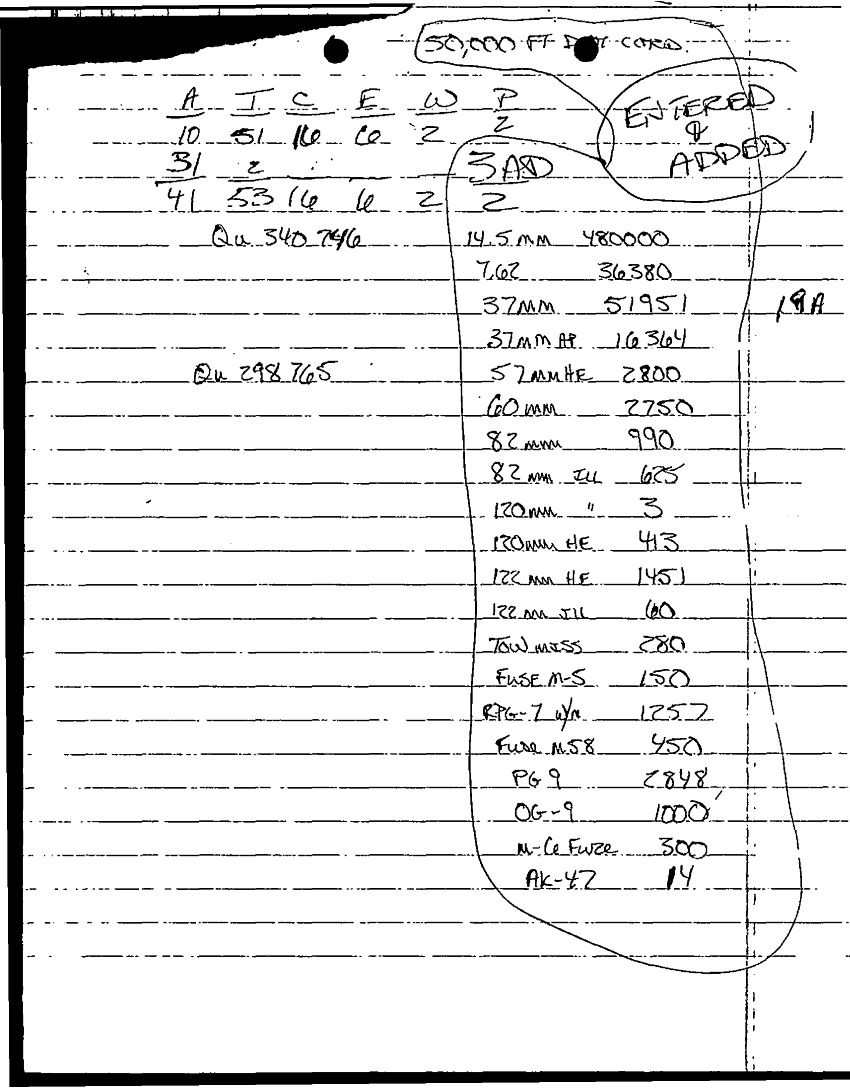 50,000 FT DET CORD.
ENTERED
&
ADDED
A I C E W P
10 51 16 6 2 2
31 2
41 53 16 6 2 2
3AD
Qu 340 746 14.5 mm 480000
7.62 36380
37mm 51951 19A
37mm AP 16364
Qu 298 765 57mm HE 2800
60 mm 2750
82 mm 990
82 mm ILL 625
120mm " 3
120mm HE 413
122 mm HE 1451
122 mm ILL 60
TOW MISS 280
FUSE M-5 150
RPG-7 1257
Fuse M58 450
PG 9 2848
OG-9 1000
M-6 Fuze 300
AK-47 14